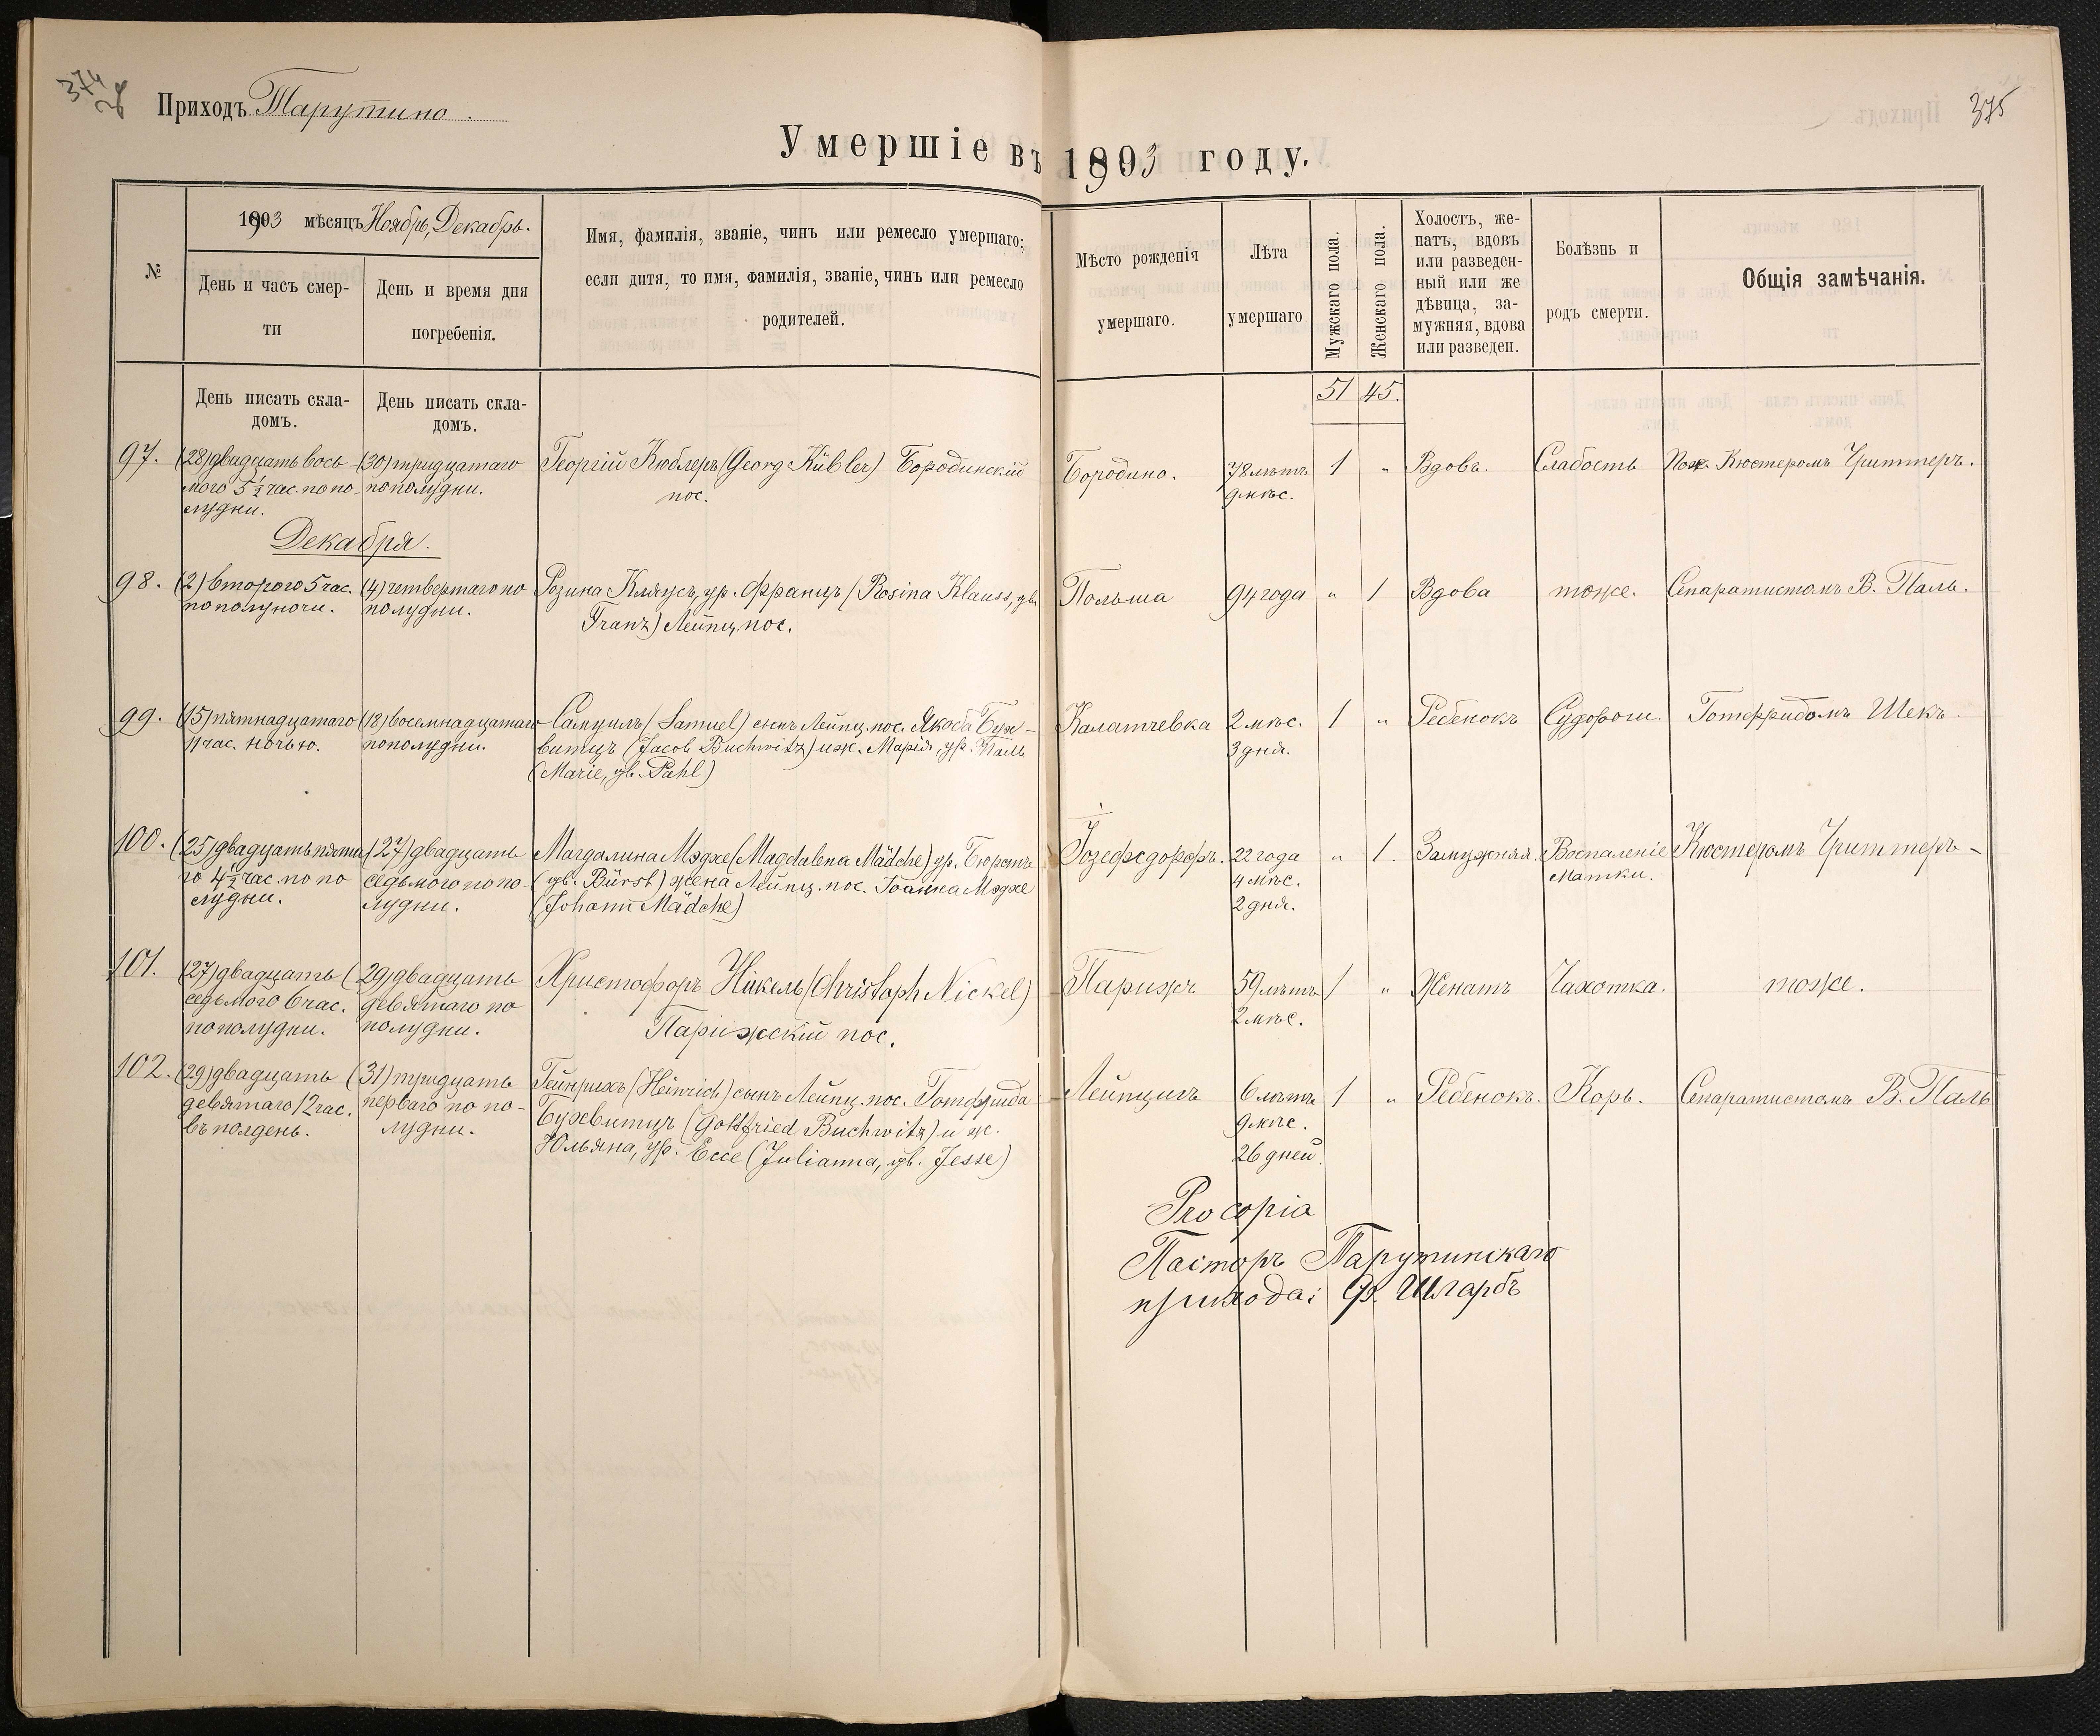 374
Приходъ Тарутино.
375
Умершіе въ 1893 году.
№
1893 мѣсяцъ Ноябрь, Декабрь.
День и часъ смер-
ти
День и время дня
погребенія.
Имя, фамилія, званіе, чинъ или ремесло умершаго;
если дитя, то имя, фамилія, званіе, чинъ или ремесло
родителей.
Мѣсто рожденія
умершаго.
Лѣта
умершаго
Мужскаго пола.
Женскаго пола.
Холостъ, же-
натъ, вдовъ
или разведен-
ный или же
дѣвица, за-
мужняя, вдова
или разведен.
Болѣзнь и
родъ смерти.
Общія замѣчанія.
День писать скла-
домъ.
День писать скла-
домъ.
51 45.
97.
(28) двадцать вось-
мого 5 ½ час. по по-
лудни.
(30) тридцатаго
пополудни.
Георгій Кюблеръ (Georg Kübler) Бородинскій
пос.
Бородино.
78 лѣтъ
9 мѣс.
1 "
Вдовъ.
Слабость
Кюстеромъ Гриттеръ.
Декабря.
98.
(2) второго 5 час.
пополуночи.
(4) четвертаго по
полудни.
Розина Клаусъ, ур. Францъ (Rosina Klauss, gb.
Franz) Лейпц. пос.
Польша
94 года
" 1
Вдова
тоже.
Сепаратистомъ В. Паль.
99.
(15) пятнадцатаго
11 час. ночью.
(18) восемнадцатаго
пополудни.
Самуилъ (Samuel) сынъ Лейпц. пос. Якоба Бух-
витцъ (Jacob Buchwitz) и ж. Марія, ур. Паль
(Marie, gb. Pahl)
Калатчевка
2 мѣс.
3 дня.
1 "
Ребенокъ
Судороги.
Готфридомъ Шекъ.
100.
(25) двадцать пята
го 4 ½ час. по по
лудни.
(27) двадцать
седьмого по по-
лудни.
Магдалина Мэдхе (Magdalena Mädche) ур. Бюрстъ
(gb. Bürst) жена Лейпц. пос. Іоанна Мэдхе
(Johann Mädche)
Іозефсдорфъ.
22 года
4 мѣс.
2 дня.
" 1.
Замужняя.
Воспаленіе
матки.
Кюстеромъ Гриттеръ-
101.
(27) двадцать
седьмого 6 час.
пополудни.
(29) двадцать
девятаго по
полудни.
Христофоръ Никель (Christoph Nickel)
Парижскій пос.
Парижъ
59 лѣтъ
2 мѣс.
1 "
Женатъ
Чахотка.
тоже.
102.
(29) двадцать
девятаго 12 час.
въ полдень.
(31) тридцать
перваго по по-
лудни.
Гейнрихъ (Heinrich) сынъ Лейпц. пос. Готфрида
Бухвитцъ (Gottfried Buchwitz) и ж.
Юльяна, ур. Ессе (Julianna, gb. Jesse)
Лейпцигъ
6 лѣтъ
9 мѣс.
26 дней.
1 "
Ребенокъ.
Корь.
Сепаратистомъ В. Паль
Pro copia
Пасторъ Тарутинскаго
прихода: Ф. Шларбъ